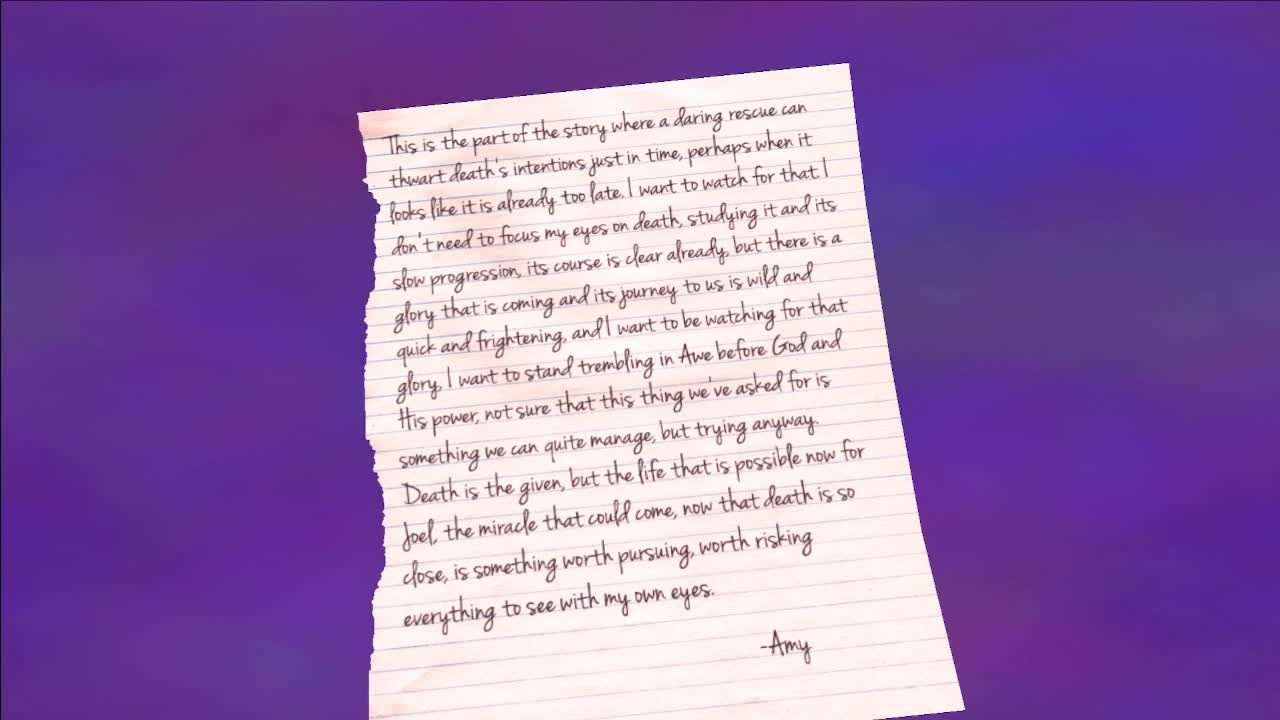 This is the part of the story where a daring rescue can
thwart death's intentions just in time, perhaps when it
looks like it is already too late. I want to watch for that I
don't need to focus my eyes on death, studying it and its
slow progression, its course is clear already, but there is a
glory that is coming and its journey to us is wild and
quick and frightening, and I want to be watching for that
glory, I want to stand trembling in Awe before God and
His power, not sure that this thing we've asked for is
something we can quite manage, but trying anyway.
Death is the given, but the life that is possible now for
Joel, the miracle that could come, now that death is so
close, is something worth pursuing, worth risking
everything to see with my own eyes.
-Amy